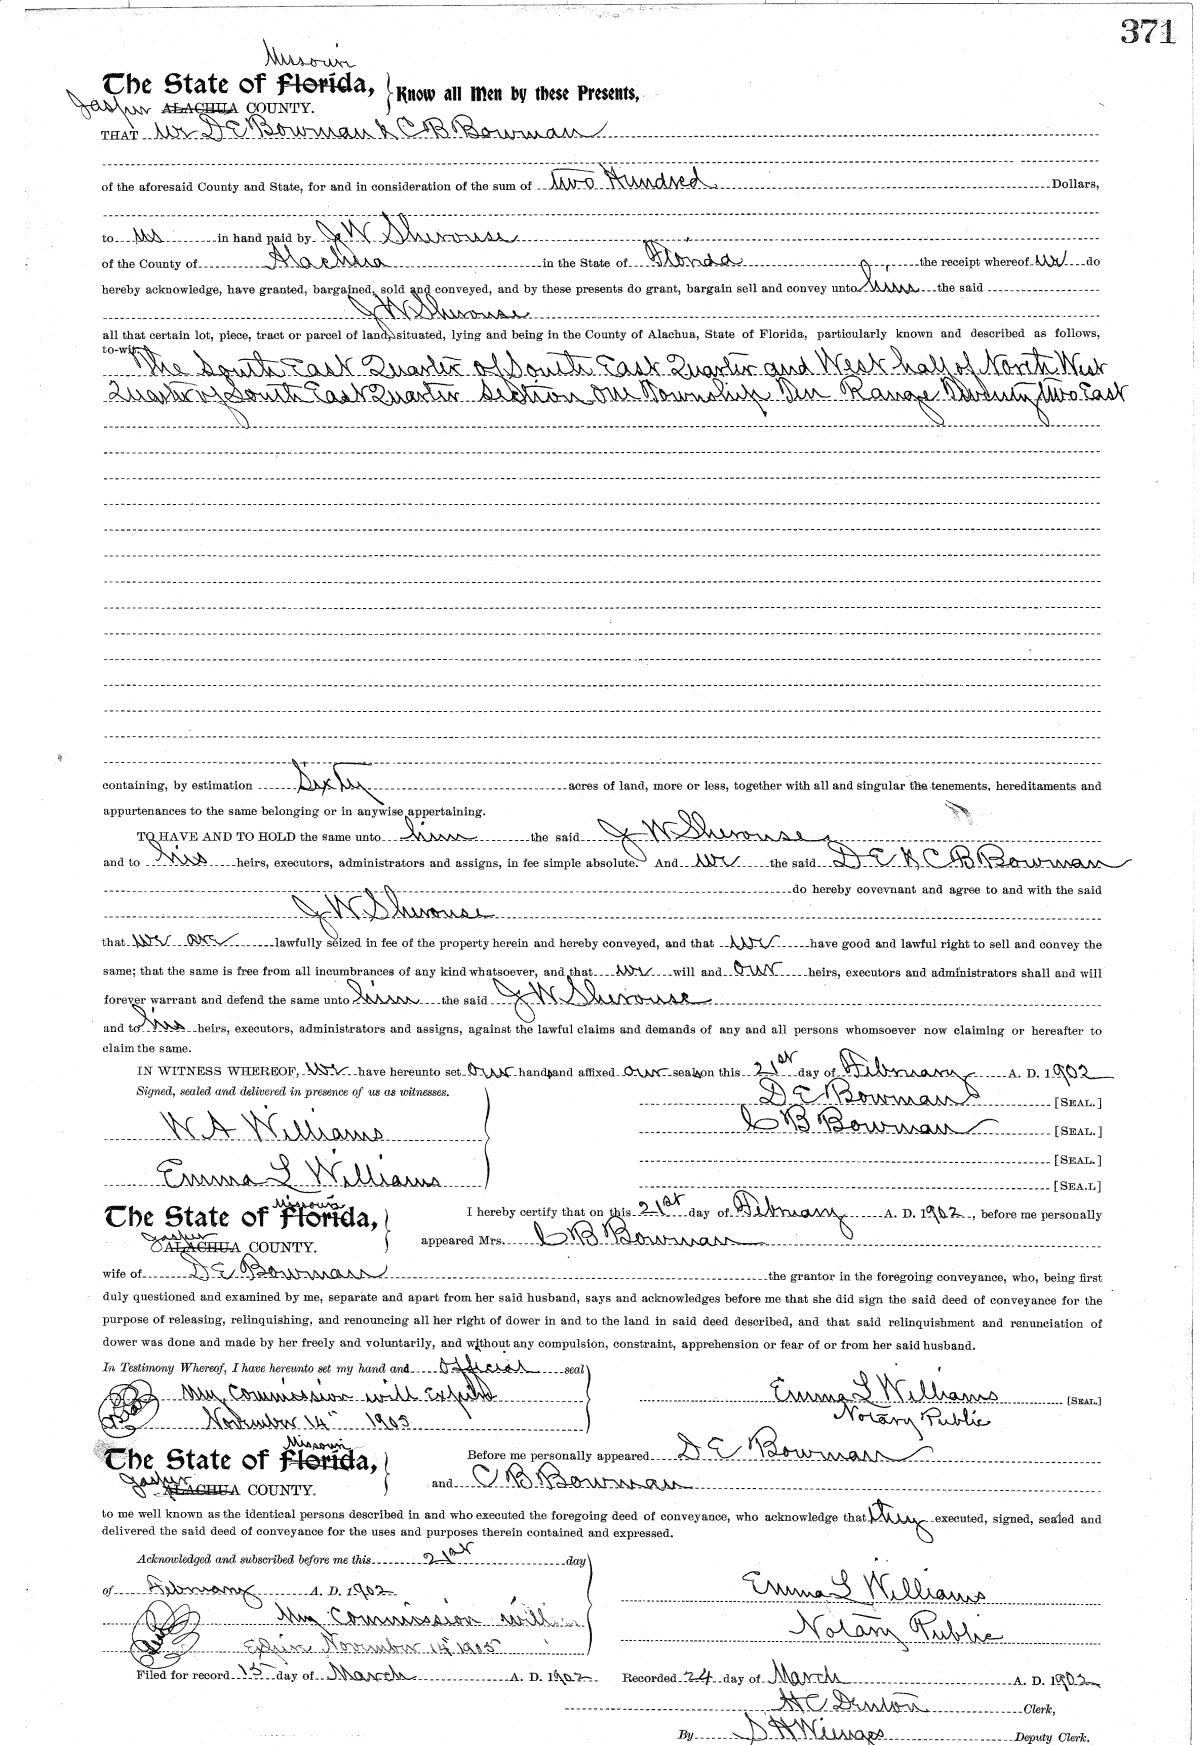 371
Missouri
The State of Florida, Know all Men by these Presents,
Jasper ALACHUA COUNTY.
THAT we D E Bowman & C B Bowman
of the aforesaid County and State, for and in consideration of the sum of two Hundred Dollars,
to us in hand paid by J W Sherouse
of the County of Alachua in the State of Florida the receipt whereof we do
hereby acknowledge, have granted, bargained, sold and conveyed, and by these presents do grant, bargain sell and convey unto him the said
J W Sherouse
all that certain lot, piece, tract or parcel of land, situated, lying and being in the County of Alachua, State of Florida, particularly known and described as follows,
to-wit:
The South East Quarter of South East Quarter and West half of North West
Quarter of South East Quarter Section One Township Ten Range Twenty two East
containing, by estimation Sixty acres of land, more or less, together with all and singular the tenements, hereditaments and
appurtenances to the same belonging or in anywise appertaining.
TO HAVE AND TO HOLD the same unto him the said J W Sherouse
and to his heirs, executors, administrators and assigns, in fee simple absolute. And we the said D E & C B Bowman
do hereby covevnant and agree to and with the said
J W Sherouse
that we are lawfully seized in fee of the property herein and hereby conveyed, and that we have good and lawful right to sell and convey the
same; that the same is free from all incumbrances of any kind whatsoever, and that we will and our heirs, executors and administrators shall and will
forever warrant and defend the same unto him the said J W Sherouse
and to his heirs, executors, administrators and assigns, against the lawful claims and demands of any and all persons whomsoever now claiming or hereafter to
claim the same.
IN WITNESS WHEREOF, we have hereunto set our hands and affixed our seals on this 21st day of February A. D. 1902
Signed, sealed and delivered in presence of us as witnesses.
D E Bowman [SEAL.]
W A Williams C B Bowman [SEAL.]
[SEAL.]
Emma L Williams [SEA.L]
Missouri
The State of Florida, I hereby certify that on this 21st day of February A. D. 1902, before me personally
Jasper ALACHUA COUNTY. appeared Mrs. C B Bowman
wife of D E Bowman the grantor in the foregoing conveyance, who, being first
duly questioned and examined by me, separate and apart from her said husband, says and acknowledges before me that she did sign the said deed of conveyance for the
purpose of releasing, relinquishing, and renouncing all her right of dower in and to the land in said deed described, and that said relinquishment and renunciation of
dower was done and made by her freely and voluntarily, and without any compulsion, constraint, apprehension or fear of or from her said husband.
In Testimony Whereof, I have hereunto set my hand and official seal
My Commission will Expire Emma L Williams [SEAL]
November 14" 1905 Notary Public
Missouri
The State of Florida, Before me personally appeared D E Bowman
Jasper ALACHUA COUNTY. and C B Bowman
to me well known as the identical persons described in and who executed the foregoing deed of conveyance, who acknowledge that they executed, signed, sealed and
delivered the said deed of conveyance for the uses and purposes therein contained and expressed.
Acknowledged and subscribed before me this 21st day
of February A. D. 1902 Emma L Williams
My Commission will Notary Public
Expire November 14" 1905
Filed for record 15 day of March A. D. 1902 Recorded 24 day of March A. D. 1902
H C Denton Clerk,
By S H Wienges Deputy Clerk.